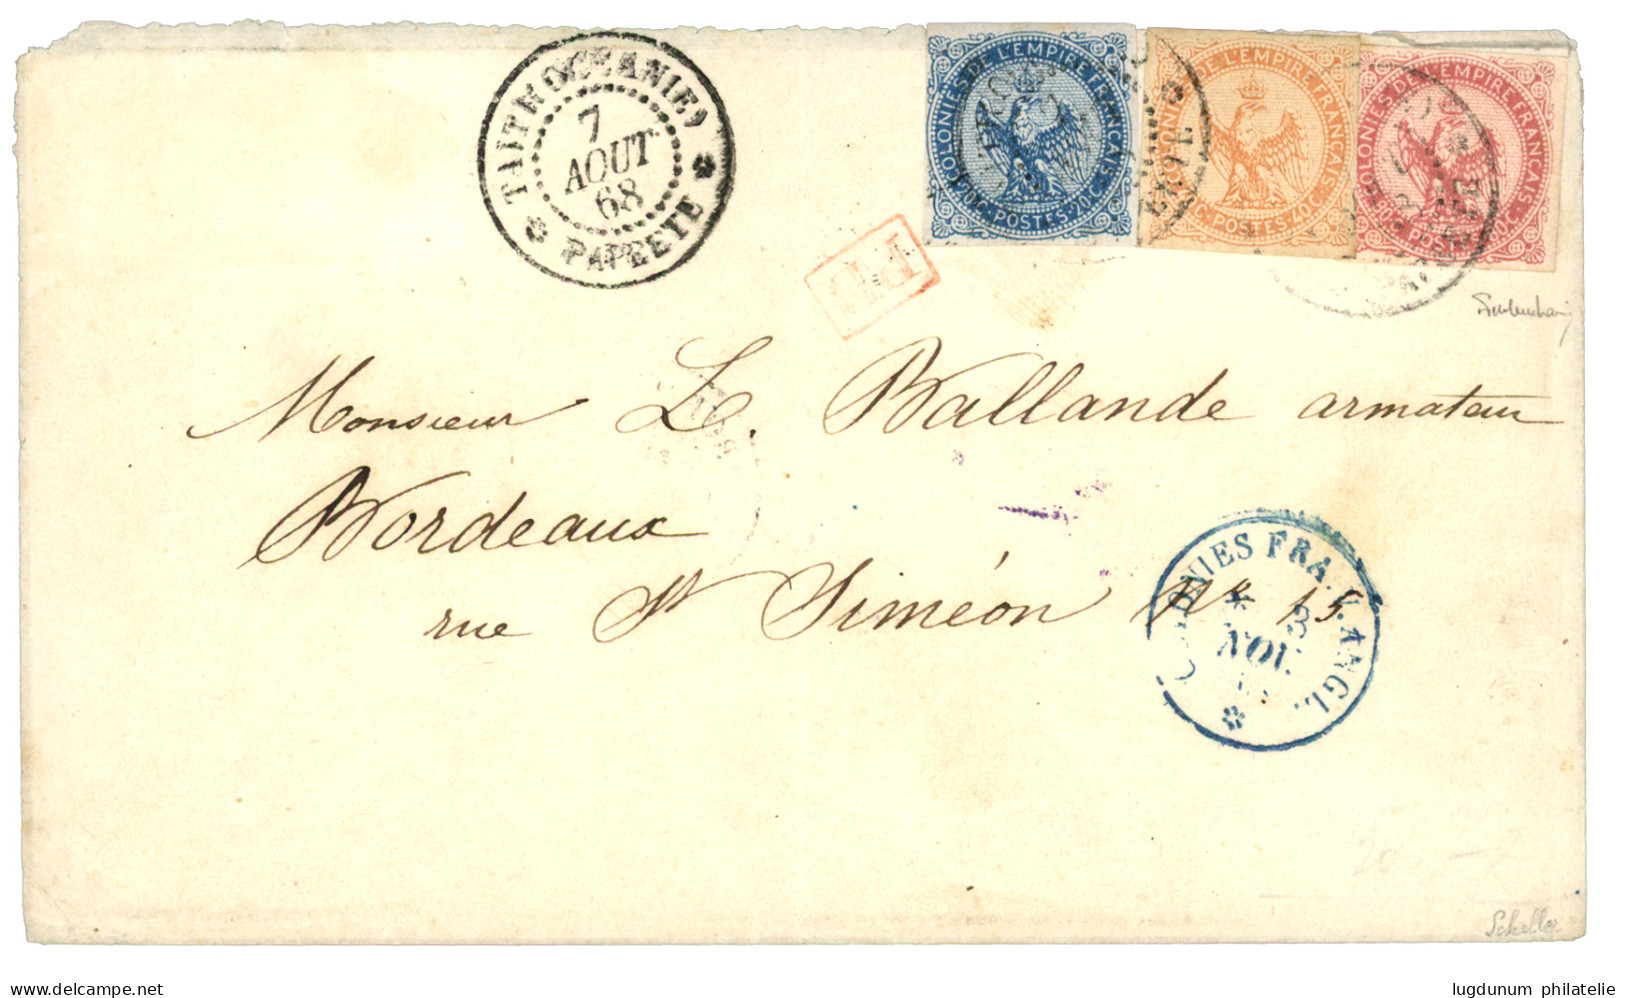 TAITI (OCEANIE)
7
AOUT
68
PAPEETE
COLONIES DE L'EMPIRE FRANÇAIS
20C. POSTES. 20C.
DE L'EMPIRE FRANÇAIS
C. POSTES. 40C.
COLONIES DE L'EMPIRE FRANÇAIS
PD
Monsieur L. Ballande armateur
Bordeaux
rue St Siméon No 15
COLONIES FRA. V. ANGL.
3
NOV.
Scheller
lugdunum philatelie